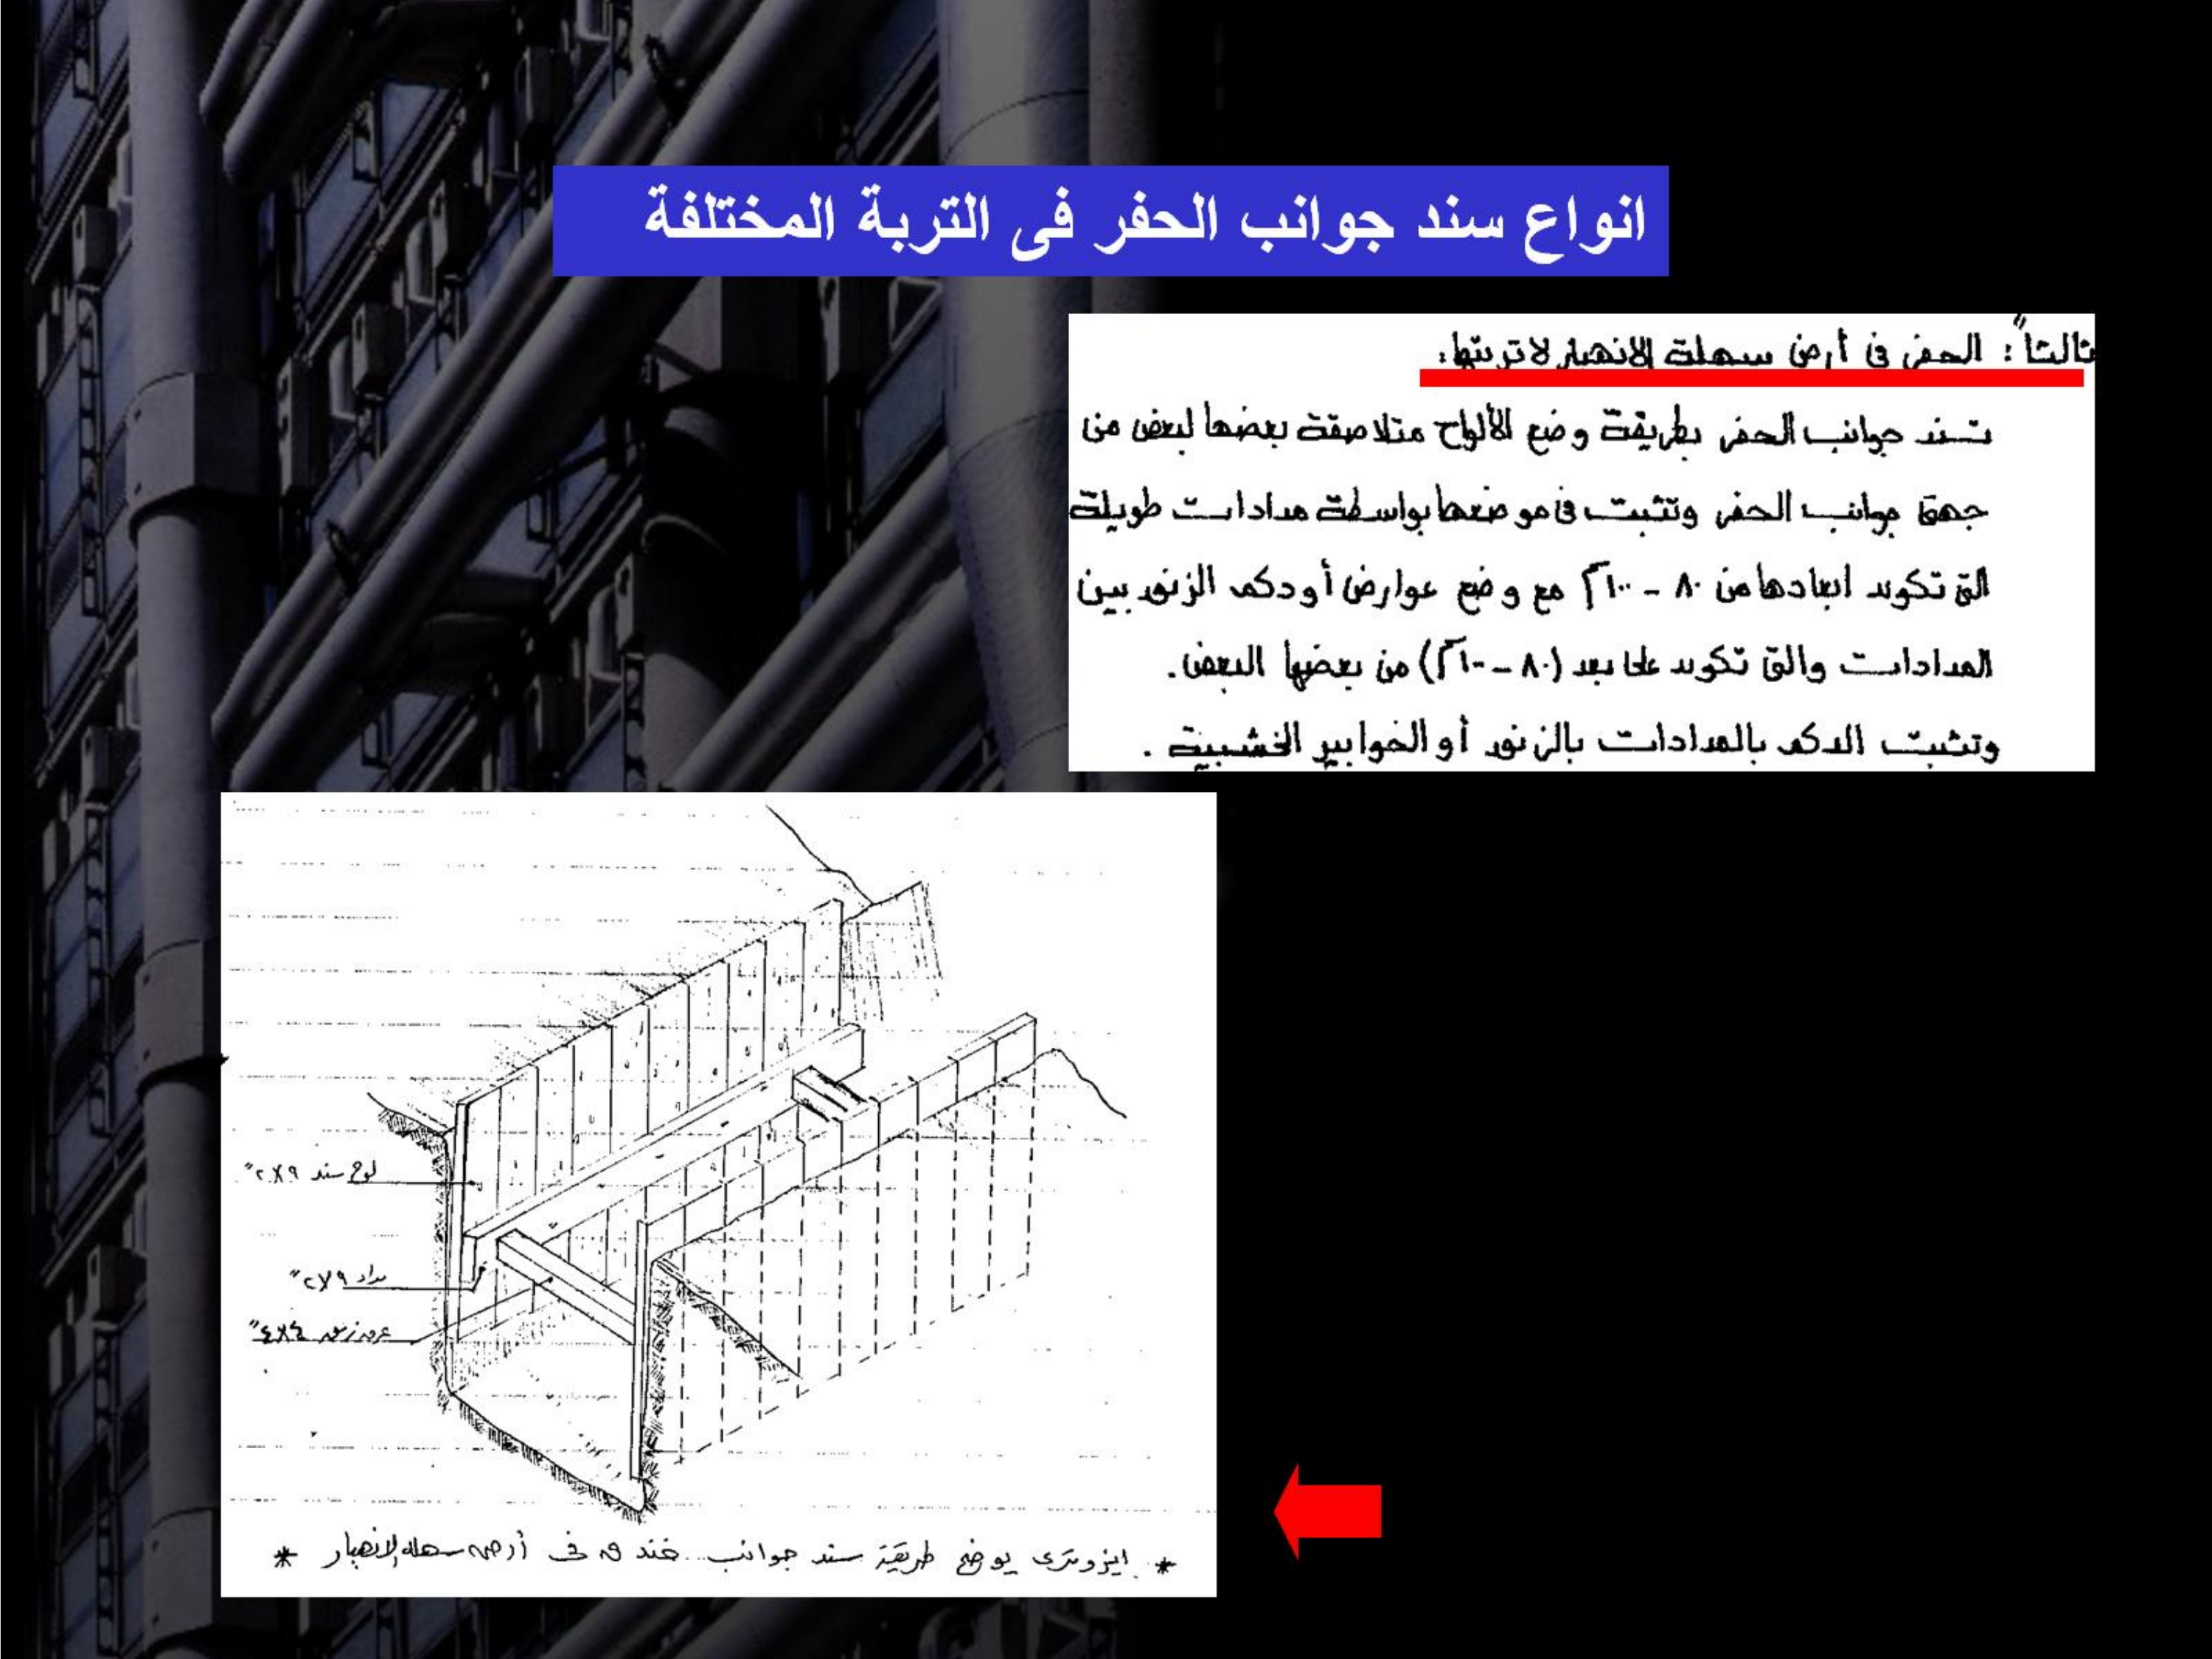 انواع سند جوانب الحفر فى التربة المختلفة
ثالثاً: الحفر فى أرض سهلة الانهيار لاتربتها:
تسند جوانب الحفر بطريقة وضع الألواح متلاصقة بعضها لبعض من
جهة جوانب الحفر وتثبت فى موضعها بواسطة مدادات طويلة
التى تكون ابعادها من ٨٠ - ١٠٠ مع وضع عوارض أو دكم الزنق بين
المدادات والتى تكون على بعد (٨٠ - ١٠٠) من بعضها البعض.
وتثبت الدكم بالمدادات بالزنق أو الخوابير الخشبية.
لوح سند ٩×٢"
مداد ٩×٢"
عرق زنق ٤×٤"
* ايزومترى يوضح طريقة سند جوانب خندق فى أرض سهلة الانهيار *